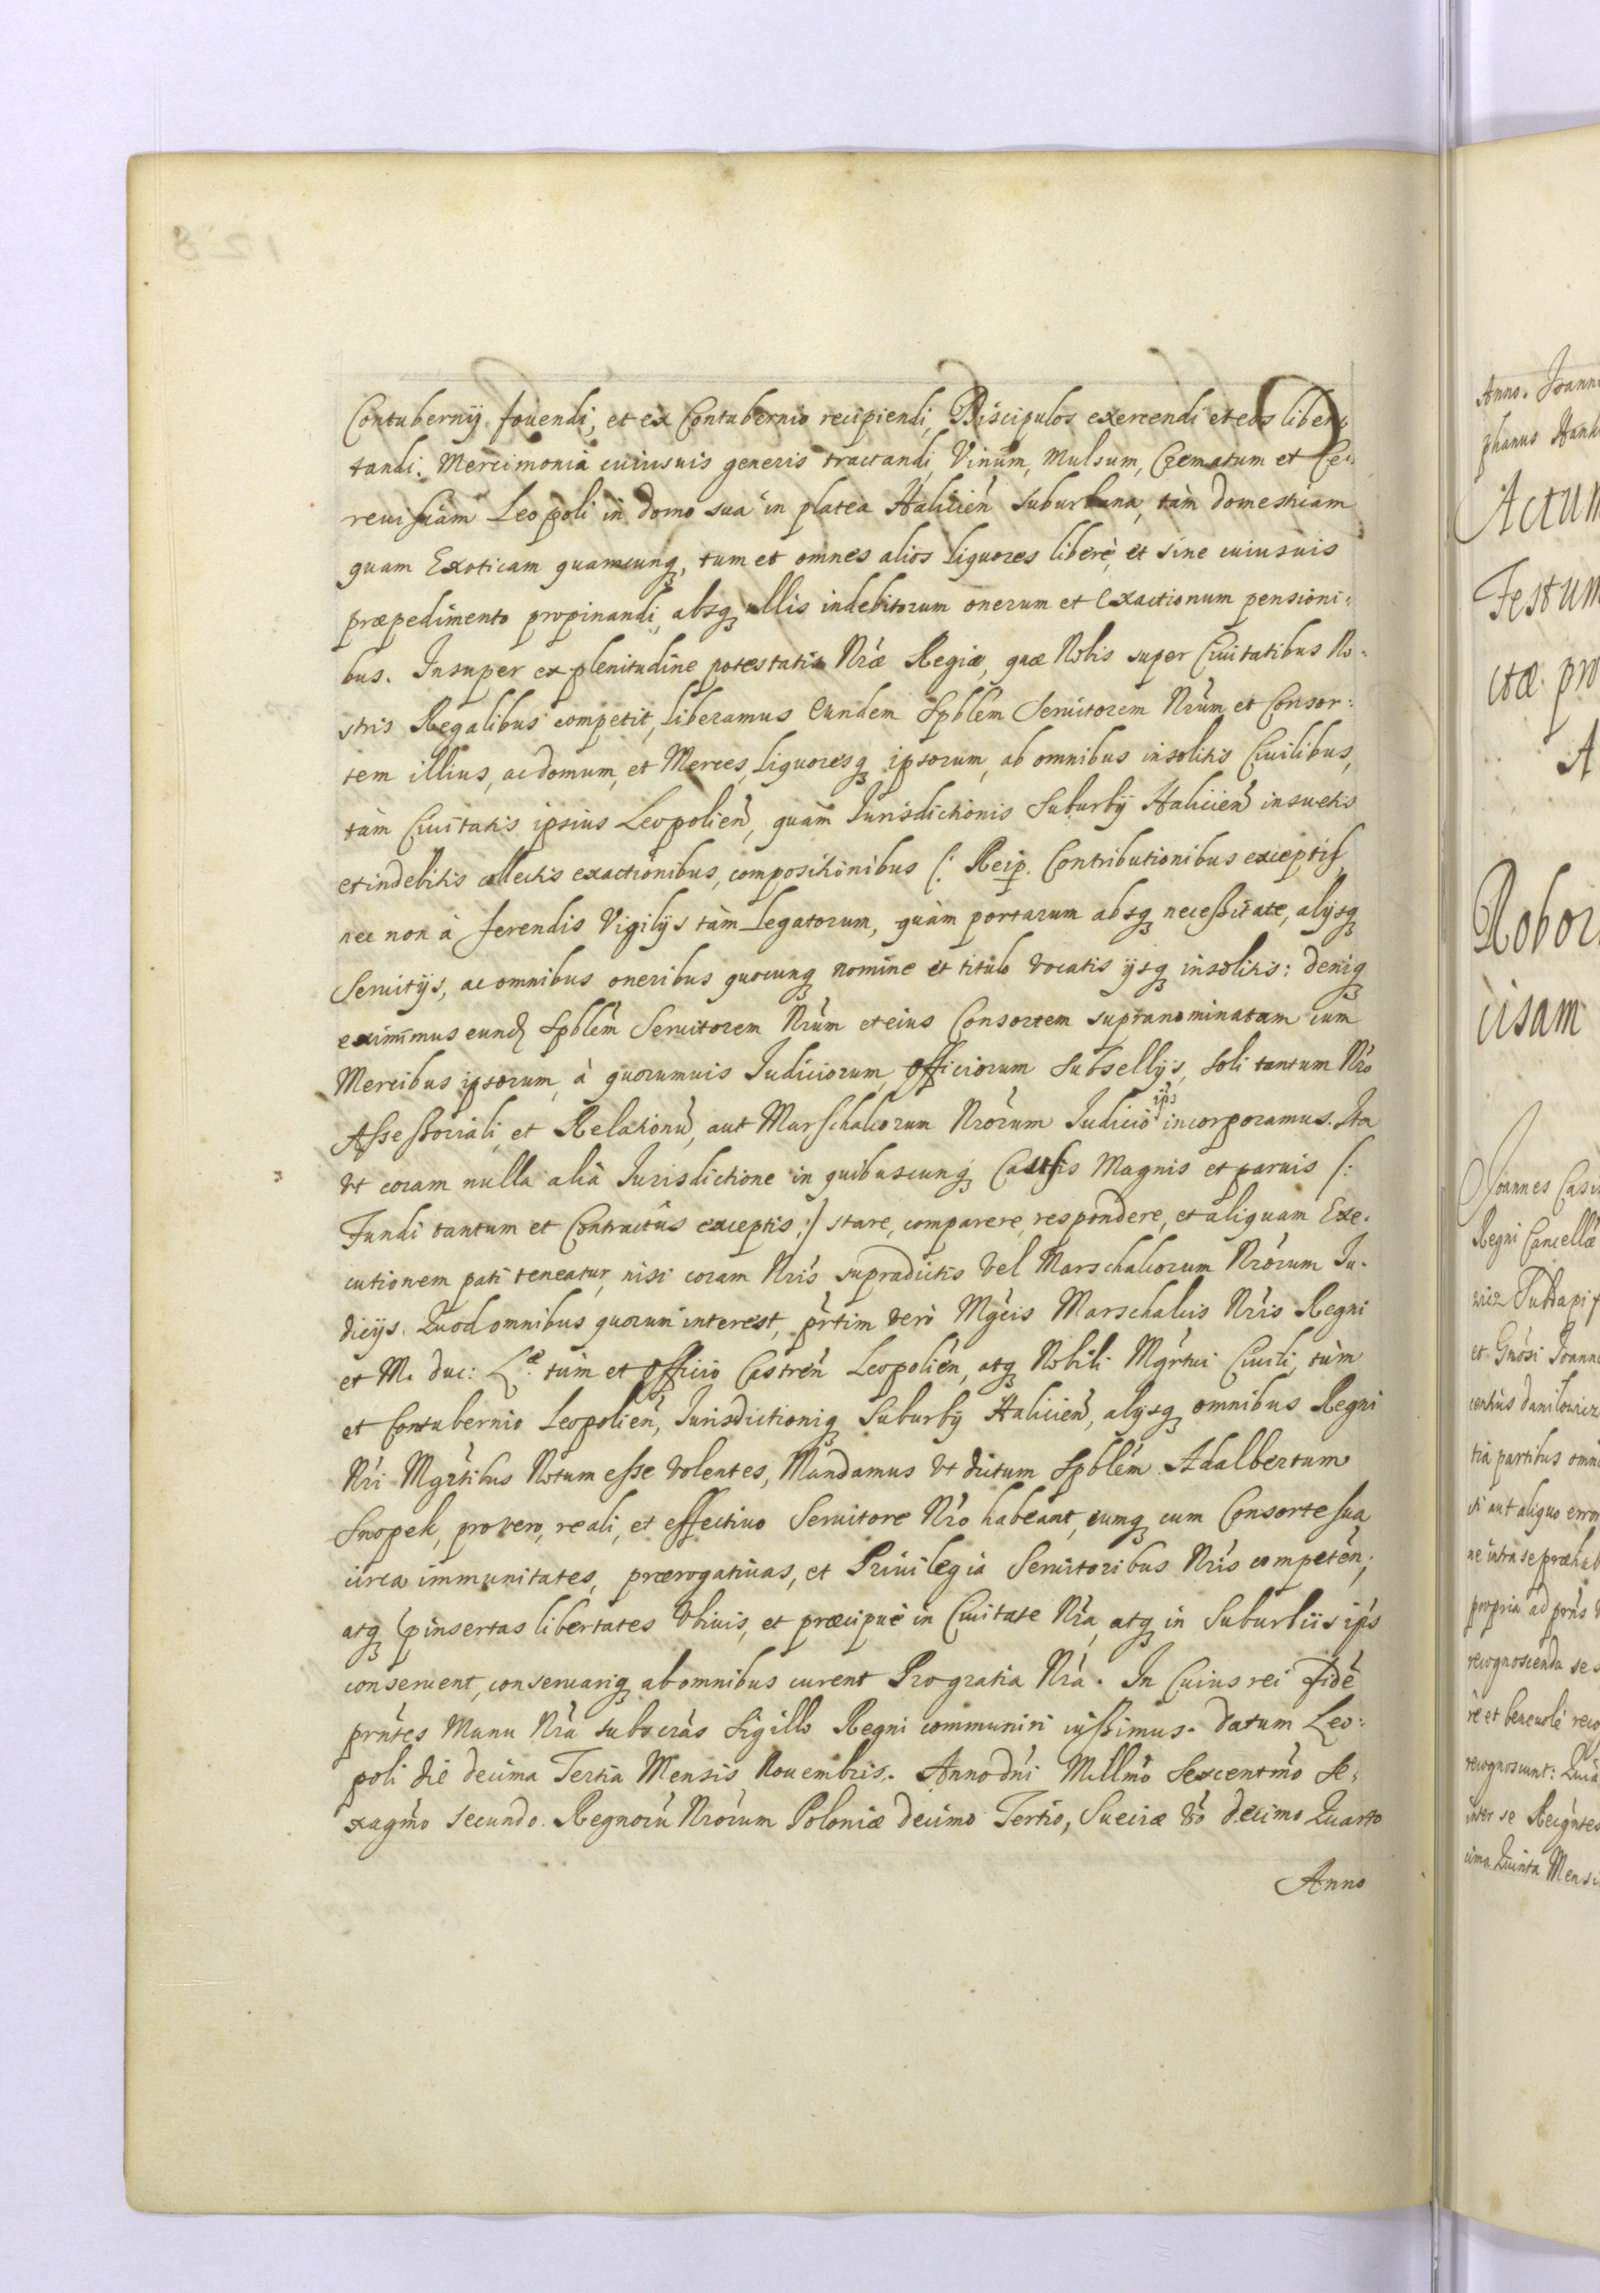 Contubernij fouendi, et ex Contubernio recipiendi, Discipulos exercendi et eos liber:
tandi. Mercimonia cuiusuis generis tractandi, Vinum, Mulsum, Crematum et Ce:
reuisiam Leopoli in domo sua in platea Halicien̄ suburbana, tàm domesticam
quam Exoticam quamcunq3, tum et omnes alios liquores liberè, et sine cuiusuis
præpedimento propinandi, absq3 ullis indebitorum onerum et Exactionum pensioni:
bus. Insuper ex plenitudine potestatis Nr̄æ Regiæ, quæ Nobis super Ciuitatibus No:
stris Regalibus competit, liberamus Eundem Spblēm Seruitorem Nr̄um et Consor:
tem illius, ac domum, et Merces, liquoresq3 ipsorum, ab omnibus insolitis Ciuilibus,
tàm Ciuitatis ipsius Leopolien̄, quàm Jurisdictionis Suburbij Haliciен̄ insuetis
et indebitis collectis exactionibus, compositionibus (: Reip. Contributionibus exceptis,
nec non à ferendis Vigilijs tàm Legatorum, quàm portarum absq3 necessitate, alijsq3
Seruitijs, ac omnibus oneribus quocunq3 nomine et titulo vocatis ijsq3 insolitis: deniq3
eximimus eund Spblēm Seruitorem Nr̄um et eius Consortem supranominatam cum
Mercibus ipsorum, à quorumuis Judiciorum, officiorum Subsellijs, soli tantum Nr̄o
Assessoriali, et Relationū, aut Marschalcorum Nr̄orum Judicio ip̄s incorporamus. Ita
vt coram nulla alià Jurisdictione in quibuscunq3 Causis Magnis et paruis (:
Fundi tantum et Contractûs exceptis :) stare, comparere, respondere, et aliquam Exe:
cutionem pati teneatur, nisi coram Nr̄is supradictis vel Marschalcorum Nr̄orum Ju:
dicijs. Quod omnibus quorum interest, pr̄tim verò Mgcis Marschalcis Nr̄is Regni
et M. duc: L.æ tùm et officio Castren̄ Leopolien̄, atq3 Nobili Mgrtui Ciuili, tùm
et Contubernio Leopolien̄, Jurisdictioniq3 Suburbij Halicien̄, alijsq3 omnibus Regni
Nr̄i Mgrtibus Notum esse volentes, Mandamus vt dictum Spblēm Adalbertum
Snopek, pro vero, reali, et effectiuo Seruitore Nr̄o habeant, eumq3 cum Consorte sua
circa immunitates, prærogatiuas, et Priuilegia Seruitoribus Nr̄is competēn;
atq3 pinsertas libertates vbiuis, et præcipuè in Ciuitate Nr̄a, atq3 in Suburbiis ip̄s
conseruent, conseruariq3 ab omnibus curent Pro gratia Nr̄a. In Cuius rei fidē
prn̄tes Manu Nr̄a subscr̄as Sigillo Regni communiri iussimus. Datum Leo:
poli die decima Tertia Mensis Nouembris. Anno dn̄i Millmō Sexcentmō Se:
xagmō secundo. Regnorū Nr̄orum Poloniæ decimo Tertio, Sueciæ vō decimo Quarto
Anno
128
Anno. Joann
phanus Hank
Actum
Festum
ctæ. pro
A
Robor
cisam
Joannes Casi
Regni Cancellā
wicz Subdapif
et Gnōsi Joann
centius danilowicz
tia partibus omni
si aut aliquo erro
ne intra se præhab
propria ad prn̄s
recognoscenda se s
rè et beneuolè reco
recognoscunt: Quia
inter se Recgn̄tes
cima Quinta Mensi